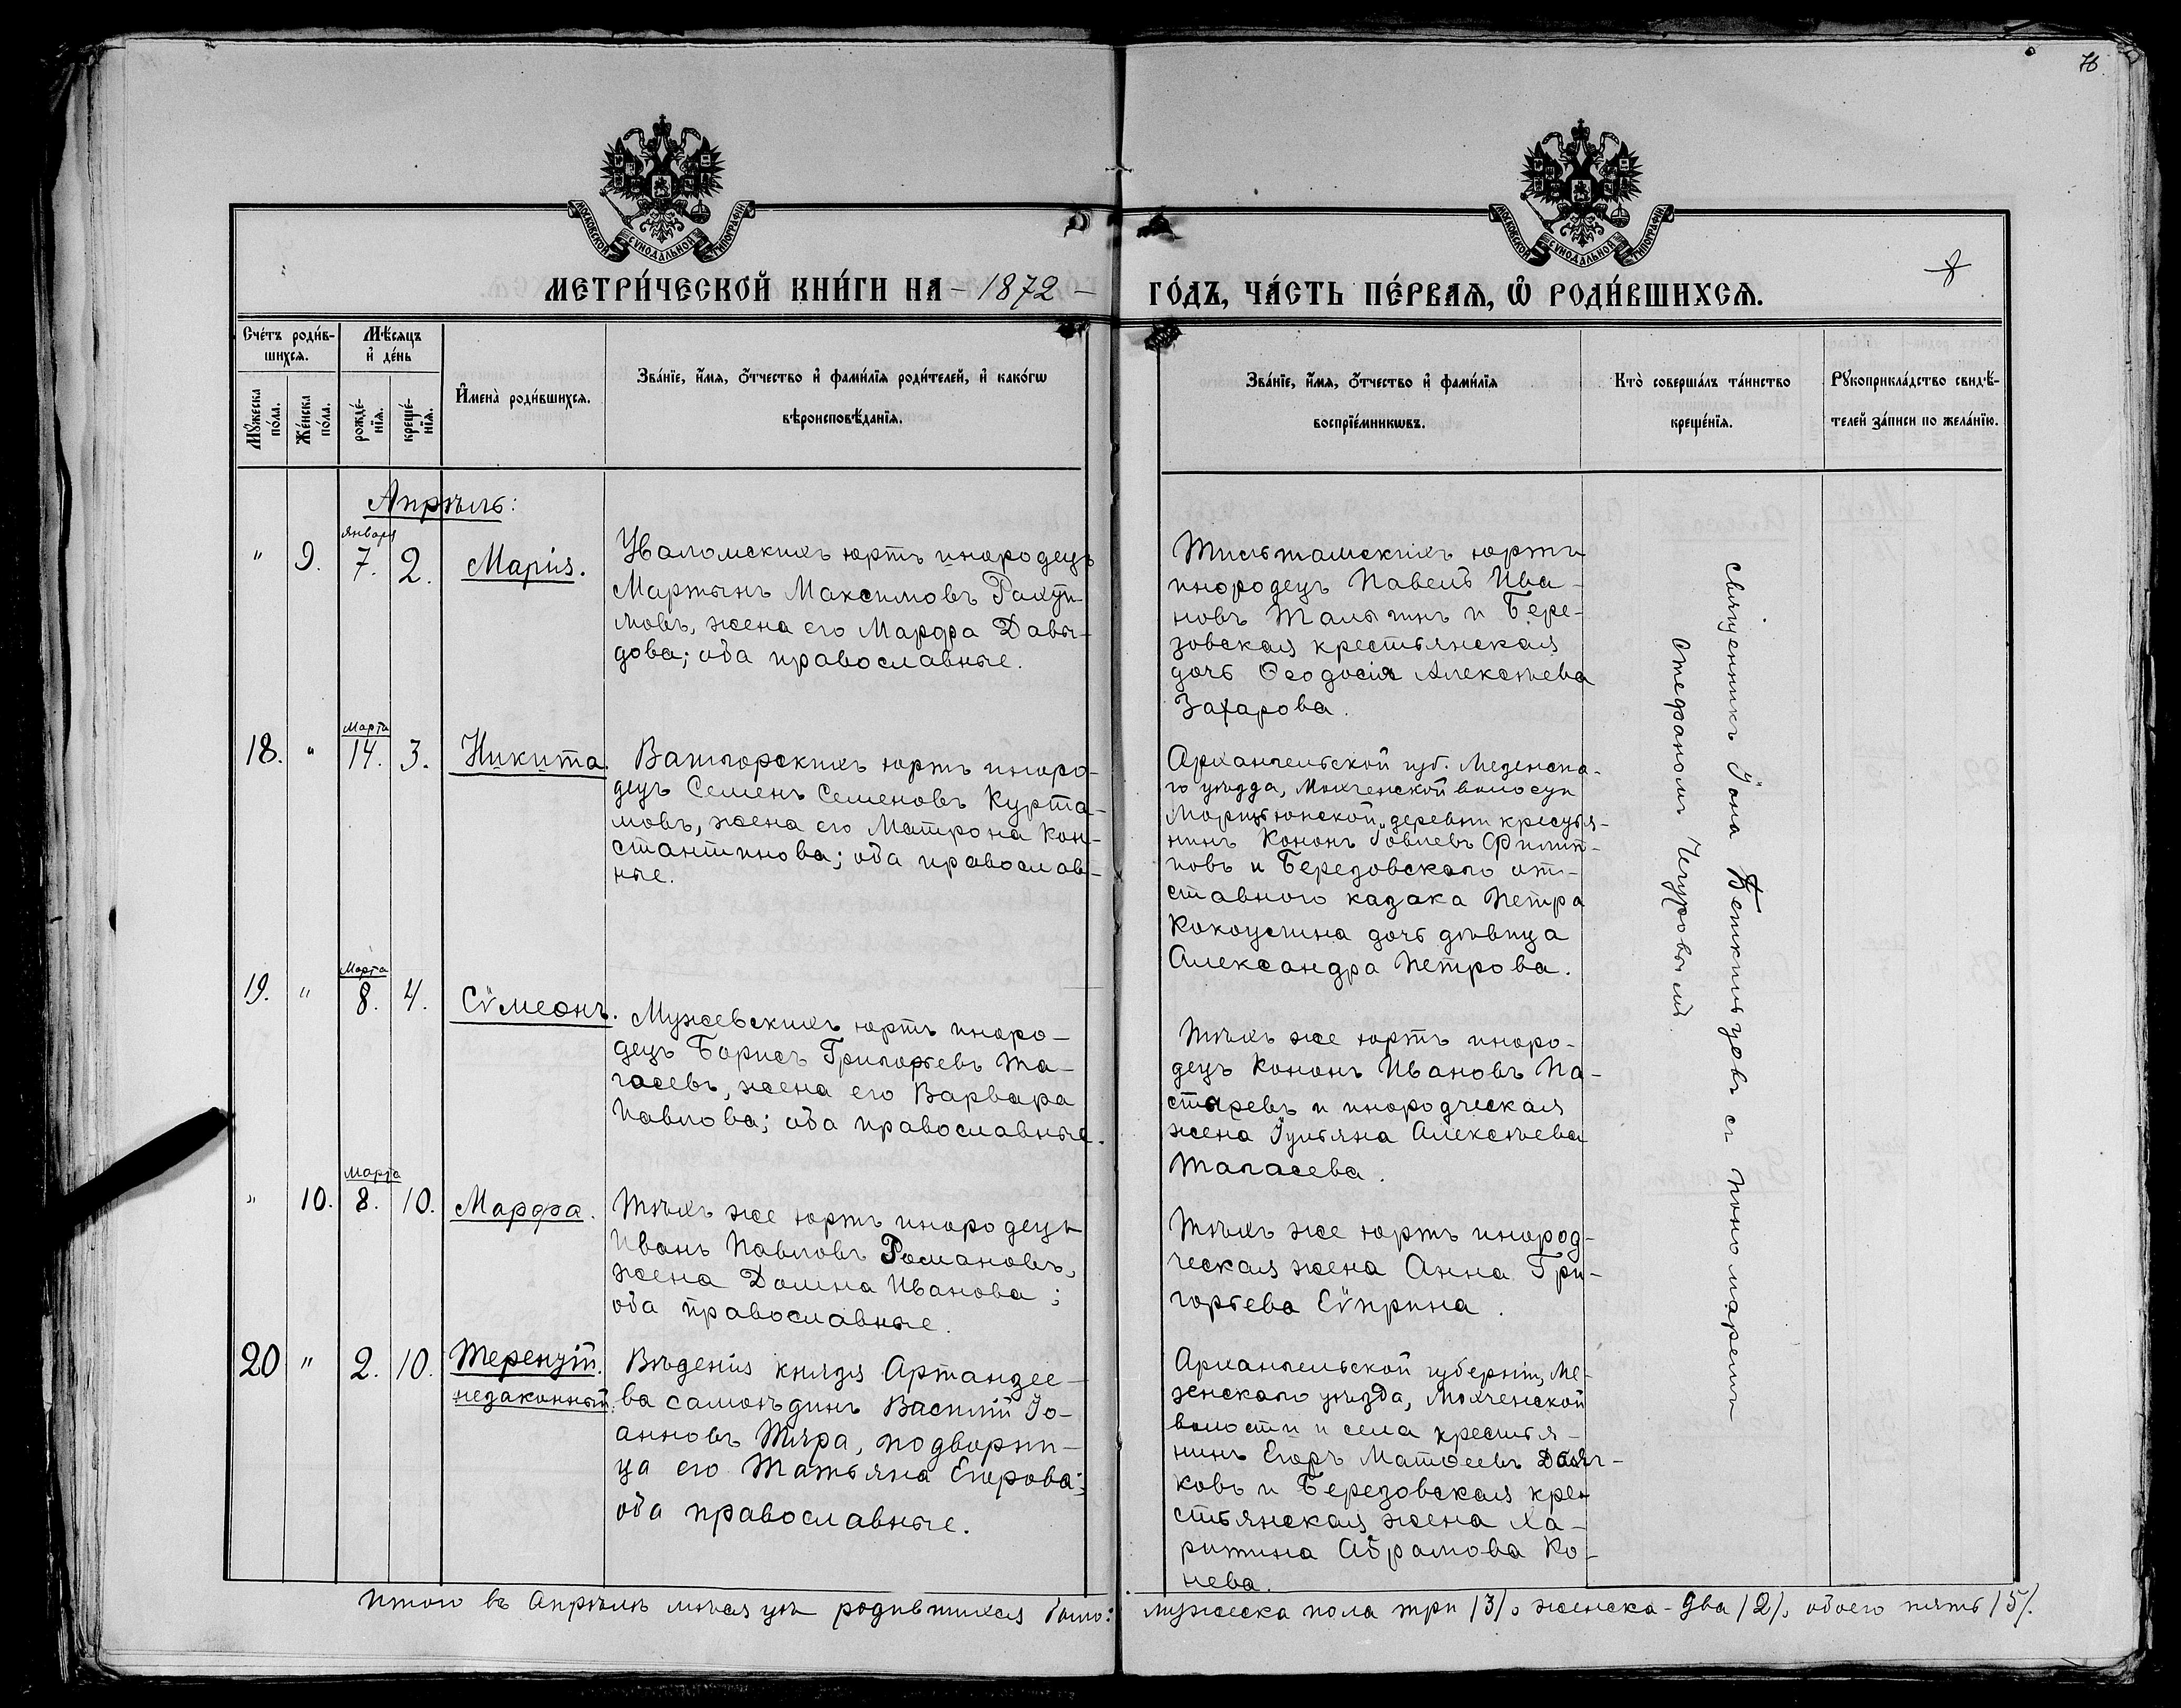 76
МОСКОВСКОЙ СѴНОДАЛЬНОЙ ТИПОГРАФІИ
МОСКОВСКОЙ СѴНОДАЛЬНОЙ ТИПОГРАФІИ
МЕТРИ́ЧЕСКОЙ КНИ́ГИ НА - 1872 -
ГО́ДЪ, ЧА́СТЬ ПЕ́РВАЯ, Ѽ РОДИ́ВШИХСЯ.
8
Сче́тъ роди́в-
шихся.
Мѣ́сяцъ
и҆ де́нь
Мꙋ́жеска
по́ла.
Же́нска
по́ла.
рожде́-
нїя.
креще́-
нїя.
И҆мена̀ роди́вшихся.
Зва́нїе, и҆́мя, ѻ҆́тчество и҆ фами́лїя роди́телей, и҆ како́гѡ
вѣроисповѣ́данїя.
Зва́нїе, и҆́мя, ѻ҆́тчество и҆ фами́лїя
воспрїе́мникѡвъ.
Кто̀ соверша́лъ та́инство
креще́нїя.
Рꙋкоприкла́дство свидѣ́-
телей за́писи по жела́нїю.
Апрѣль:
января
" 9. 7. 2. Марія.
Уваломскихъ юртъ инородецъ
Мартынъ Максимовъ Рахти-
мовъ, жена его Марфа Давы-
дова; оба православные.
Тильтамскихъ юртъ
инородецъ Павелъ Ива-
новъ Талыпинъ и Бере-
зовская крестьянская
дочь Ѳеодосія Алексѣева
Захарова.
Марта
18. " 14. 3. Никита.
Ванзорскихъ юртъ иноро-
децъ Семенъ Семеновъ Курта-
мовъ, жена его Матрона Кон-
стантинова; оба православ-
ные.
Архангельской губ. Мезенска-
го уѣзда, Мохченской волости
деревни крестья-
нинъ Кононъ Іовлевъ Филип-
повъ и Березовскаго от-
ставного казака Петра
Кокоулина дочь дѣвица
Александра Петрова.
Марта
19. " 8. 4. Сѵмеонъ.
Мужевскихъ юртъ иноро-
децъ Борисъ Григорьевъ Та-
гасевъ, жена его Варвара
Павлова; оба православные.
Тѣхъ же юртъ иноро-
децъ Кононъ Ивановъ Па-
стыревъ и инородческая
жена Іуліяна Алексѣева
Тагасева.
Марта
" 10. 8. 10. Марфа.
Тѣхъ же юртъ инородецъ
Иванъ Павловъ Романовъ,
жена Домна Иванова;
оба православные.
Тѣхъ же юртъ инород-
ческая жена Анна Гри-
горьева Еѵприна.
20 " 2. 10. Терентій.
незаконный.
Вѣденія князя Артанзее-
ва самоѣдинъ Василій Іо-
анновъ Тяра, подворни-
ца его Татьяна Егорова;
оба православные.
Архангельской губерніи, Ме-
зенскаго уѣзда, Мохченской
волости и села крестья-
нинъ Егоръ Матѳеевъ Дьяч-
ковъ и Березовская кре-
стьянская жена Ха-
ритина Абрамова Ко-
нева.
священникъ Іона Вешкильцевъ съ пономаремъ
Стефаномъ Чечуровымъ
Итого въ Апрѣлѣ мѣсяцѣ родившихся было: мужеска пола три /3/, женска - два /2/, обоего пять /5/.